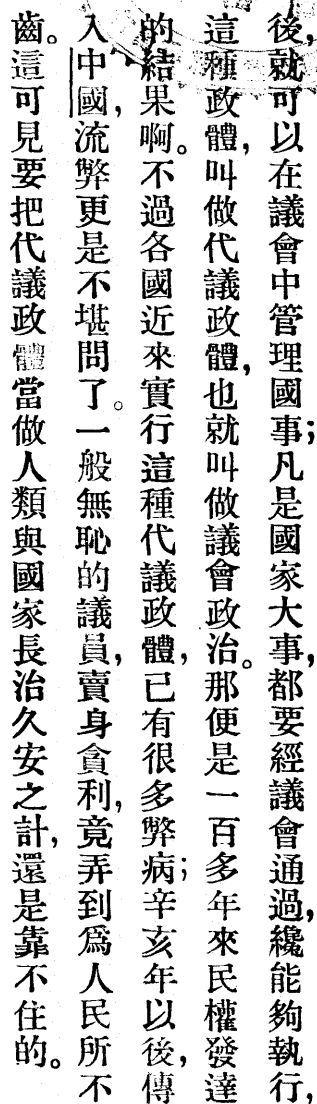 後，就可以在議會中管理國事；凡是國家大事，都要經議會通過，纔能夠執行，
這種政體，叫做代議政體，也就叫做議會政治。那便是一百多年來民權發達
的結果啊。不過各國近來實行這種代議政體，已有很多弊病；辛亥年以後，傳
入中國，流弊更是不堪問了。一般無恥的議員，賣身貪利，竟弄到爲人民所不
齒。這可見要把代議政體當做人類與國家長治久安之計，還是靠不住的。